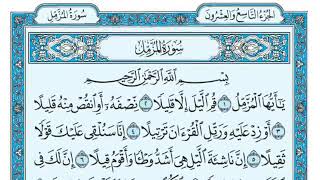 الجزء التاسع والعشرون
سورة المزمل
سُورَةُ المُزَّمِّلِ
بِسْمِ اللَّهِ الرَّحْمَٰنِ الرَّحِيمِ
يَٰٓأَيُّهَا الْمُزَّمِّلُ ١ قُمِ الَّيْلَ إِلَّا قَلِيلًا ٢ نِّصْفَهُۥٓ أَوِ انقُصْ مِنْهُ قَلِيلًا
٣ أَوْ زِدْ عَلَيْهِ وَرَتِّلِ الْقُرْءَانَ تَرْتِيلًا ٤ إِنَّا سَنُلْقِى عَلَيْكَ قَوْلًا
ثَقِيلًا ٥ إِنَّ نَاشِئَةَ الَّيْلِ هِىَ أَشَدُّ وَطْـًٔا وَأَقْوَمُ قِيلًا ٦ إِنَّ لَكَ فِى